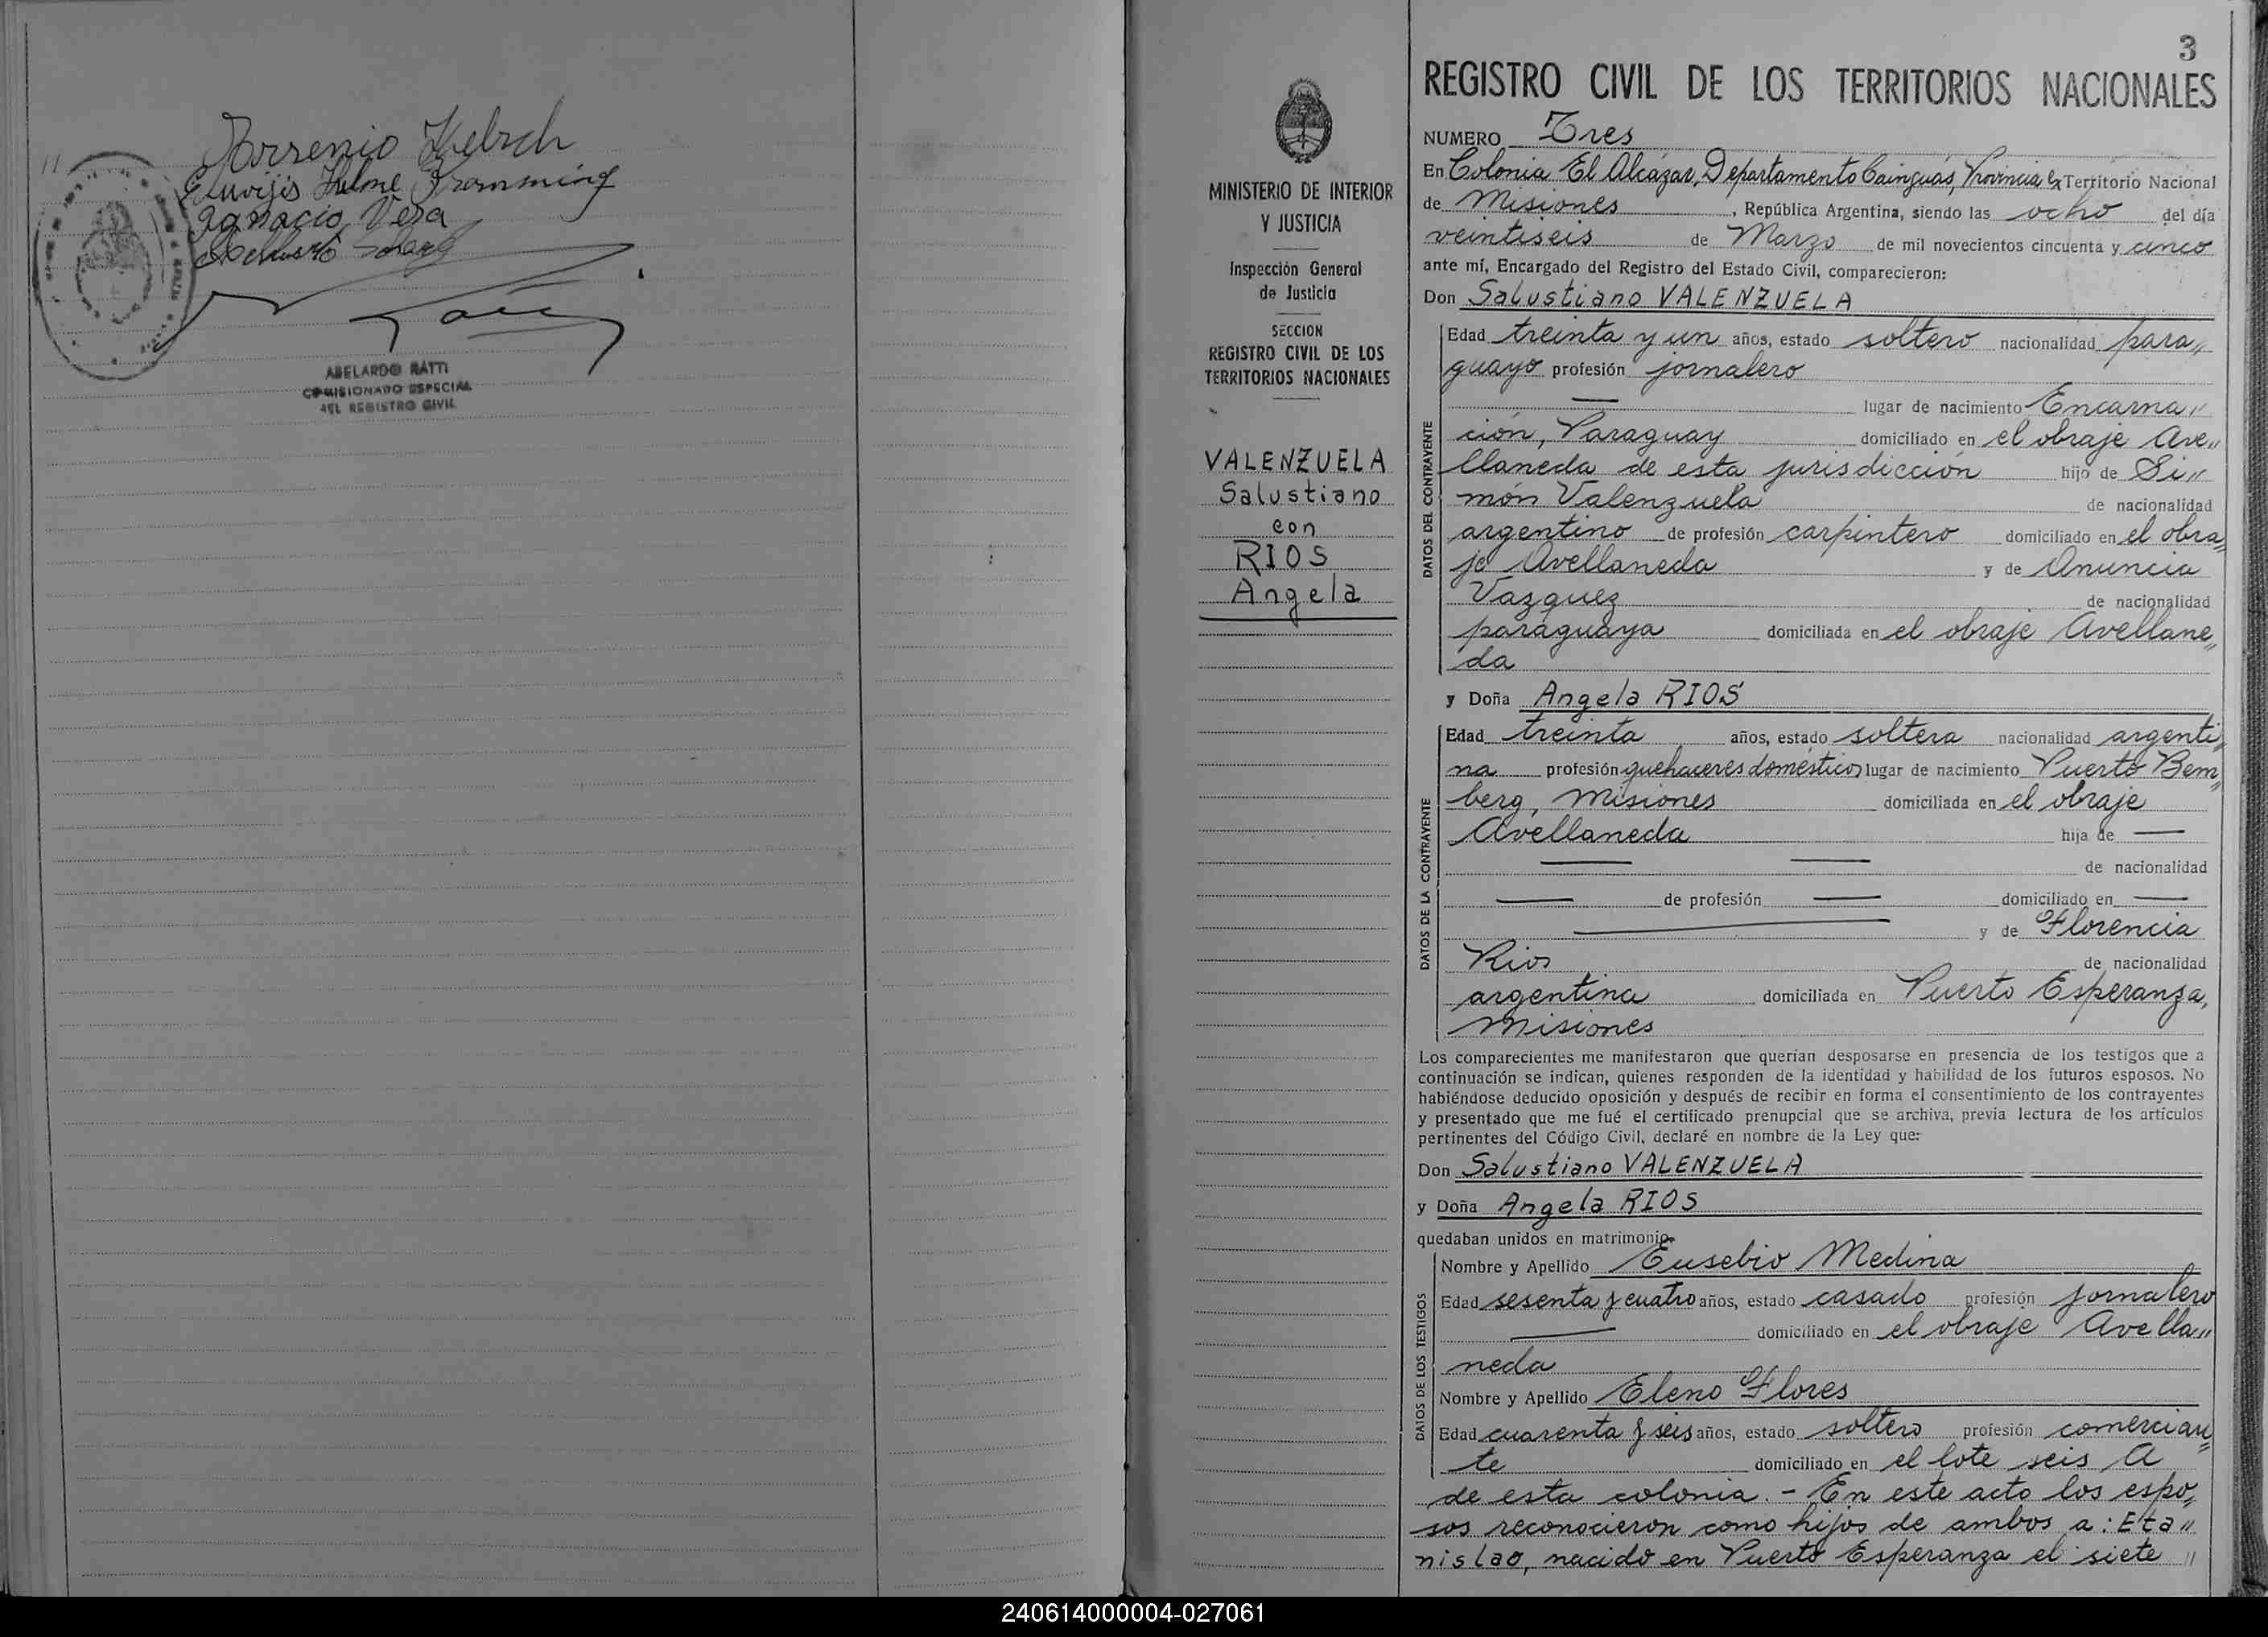 Ignacio Vera
ABELARDO RATTI
COMISIONADO ESPECIAL
DEL REGISTRO CIVIL
MINISTERIO DE INTERIOR
Y JUSTICIA
Inspección General
de Justicia
SECCION
REGISTRO CIVIL DE LOS
TERRITORIOS NACIONALES
VALENZUELA
Salustiano
con
RIOS
Angela
3
REGISTRO CIVIL DE LOS TERRITORIOS NACIONALES
NUMERO Tres
En Colonia El Alcázar, Departamento Cainguás, Provincia ex Territorio Nacional
de Misiones, República Argentina, siendo las ocho del día
veintiseis de Marzo de mil novecientos cincuenta y cinco
ante mí, Encargado del Registro del Estado Civil, comparecieron:
Don Salustiano VALENZUELA
DATOS DEL CONTRAYENTE
Edad treinta y un años, estado soltero nacionalidad para„
guayo profesión jornalero
— lugar de nacimiento Encarna„
ción, Paraguay domiciliado en el obraje Ave„
llaneda de esta jurisdicción hijo de Si„
món Valenzuela de nacionalidad
argentino de profesión carpintero domiciliado en el obra„
je Avellaneda y de Anuncia
Vazquez de nacionalidad
paraguaya domiciliada en el obraje Avellane„
da
y Doña Angela RIOS
DATOS DE LA CONTRAYENTE
Edad treinta años, estado soltera nacionalidad argenti„
na profesión quehaceres domésticos lugar de nacimiento Puerto Bem„
berg, Misiones domiciliada en el obraje
Avellaneda hija de —
— — de nacionalidad
— de profesión — domiciliado en —
— y de Florencia
Rios de nacionalidad
argentina domiciliada en Puerto Esperanza,
Misiones
Los comparecientes me manifestaron que querían desposarse en presencia de los testigos que a
continuación se indican, quienes responden de la identidad y habilidad de los futuros esposos. No
habiéndose deducido oposición y después de recibir en forma el consentimiento de los contrayentes
y presentado que me fué el certificado prenupcial que se archiva, previa lectura de los artículos
pertinentes del Código Civil, declaré en nombre de la Ley que:
Don Salustiano VALENZUELA
y Doña Angela RIOS
quedaban unidos en matrimonio.
DATOS DE LOS TESTIGOS
Nombre y Apellido Eusebio Medina
Edad sesenta y cuatro años, estado casado profesión jornalero
— domiciliado en el obraje Avella„
neda
Nombre y Apellido Eleno Flores
Edad cuarenta y seis años, estado soltero profesión comercian„
te domiciliado en el lote seis A
de esta colonia. - En este acto los espo„
sos reconocieron como hijos de ambos a: Eta„
nislao, nacido en Puerto Esperanza el siete „
240614000004-027061